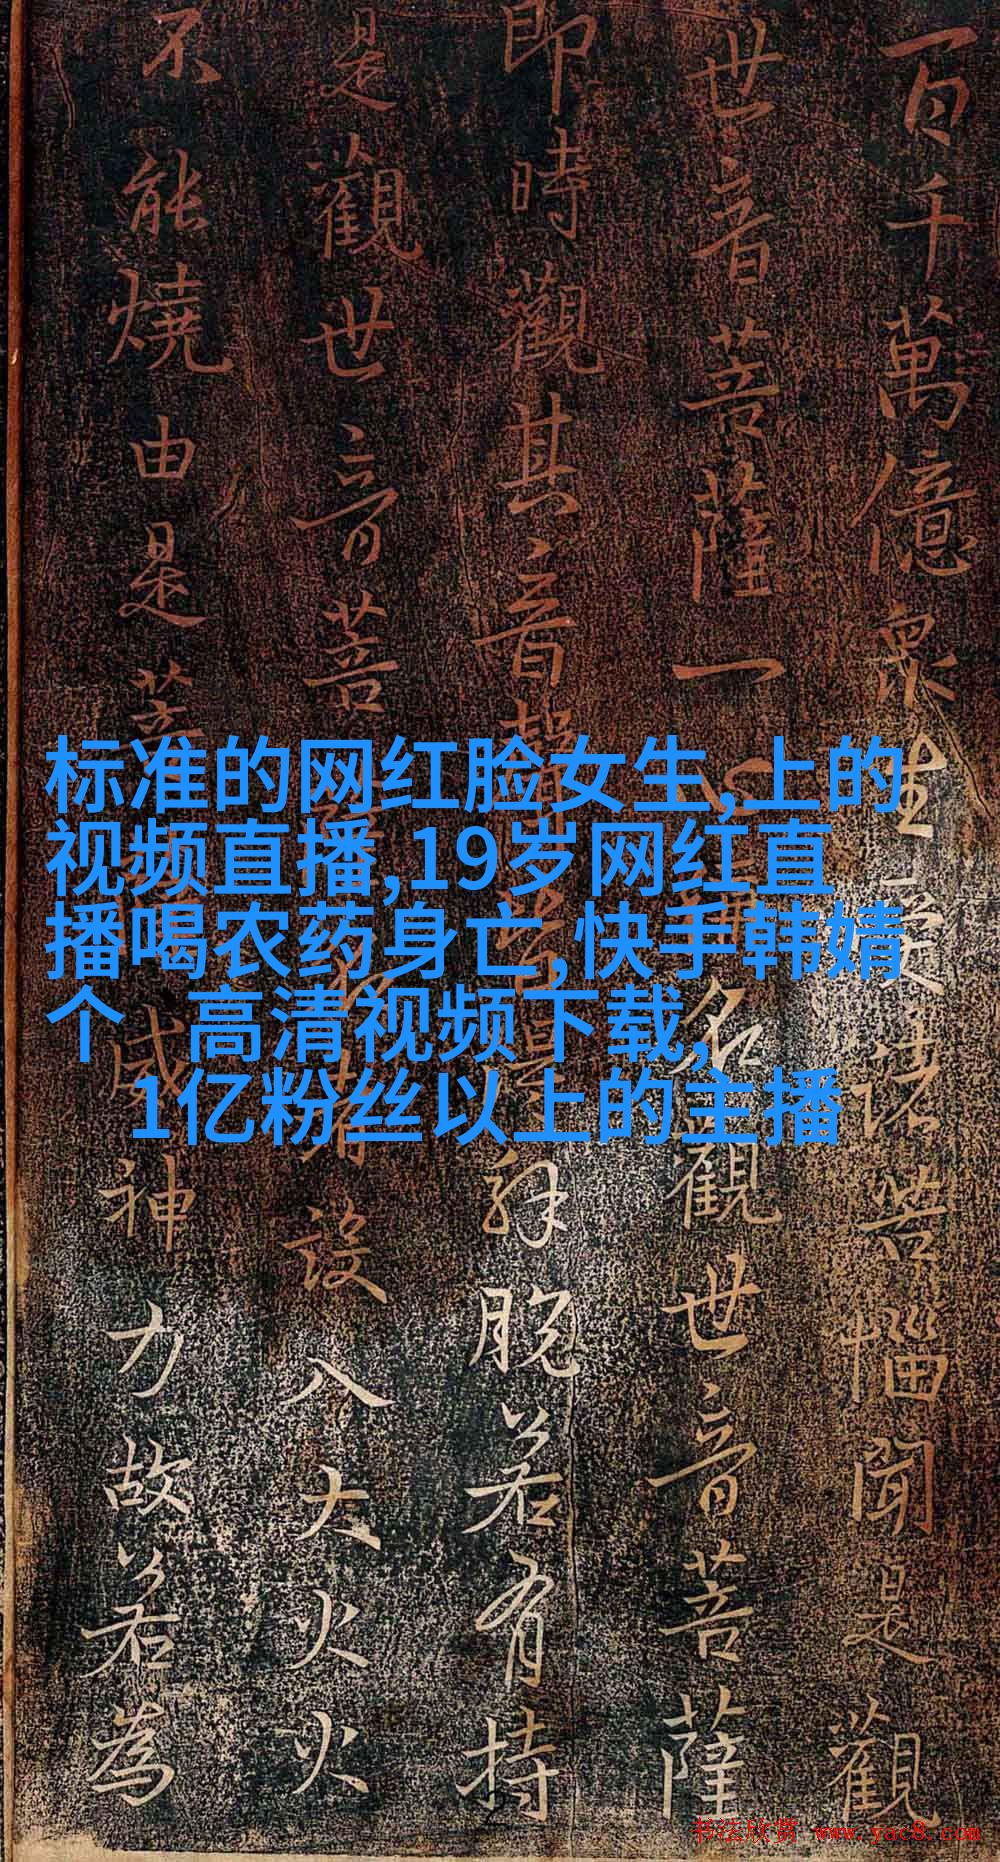 百千萬億眾生受諸苦惱聞是觀
世音菩薩一心名觀世音菩薩
即時觀其音聲皆解脫若有持
是觀世音菩者設入大火火
不能燒由是菩威神力故若為
标准的网红脸女生,上的
视频直播,19岁网红直
播喝农药身亡,快手韩婧
个 高清视频下载,
1亿粉丝以上的主播
书法欣赏 www.yac8.com